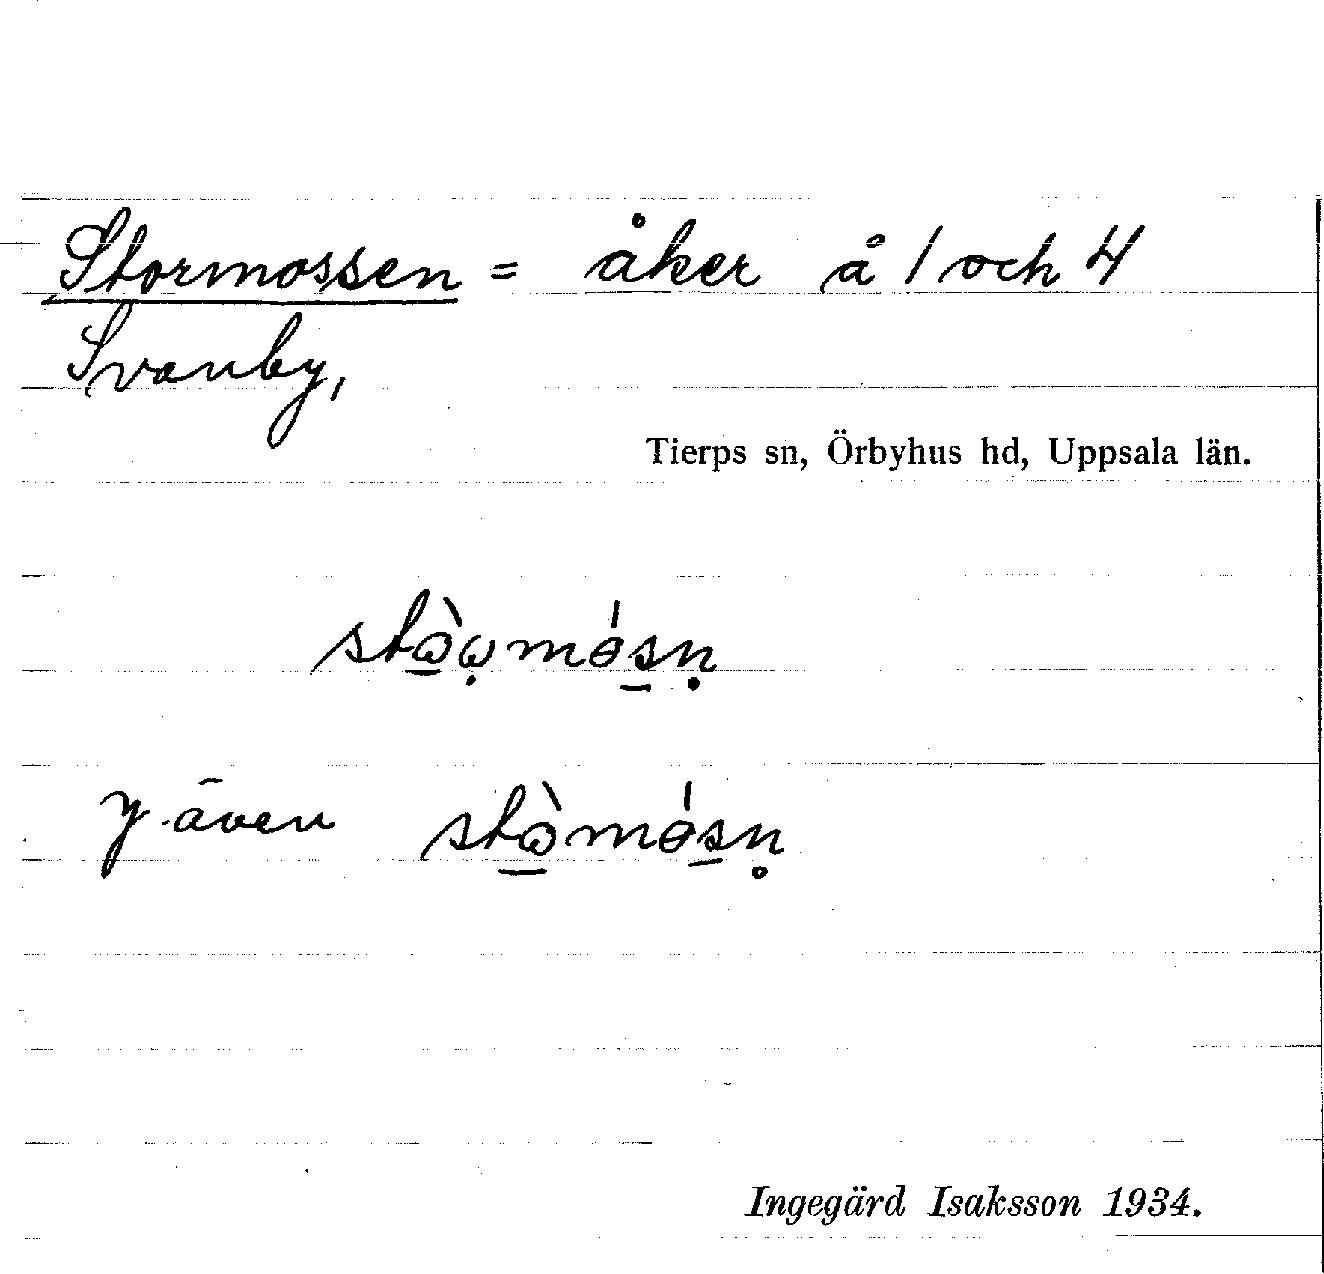 Stormossen = åker å 1 och 4
Svanby,
Tierps sn, Örbyhus hd, Uppsala län.
y även
Ingegärd Isaksson 1934.